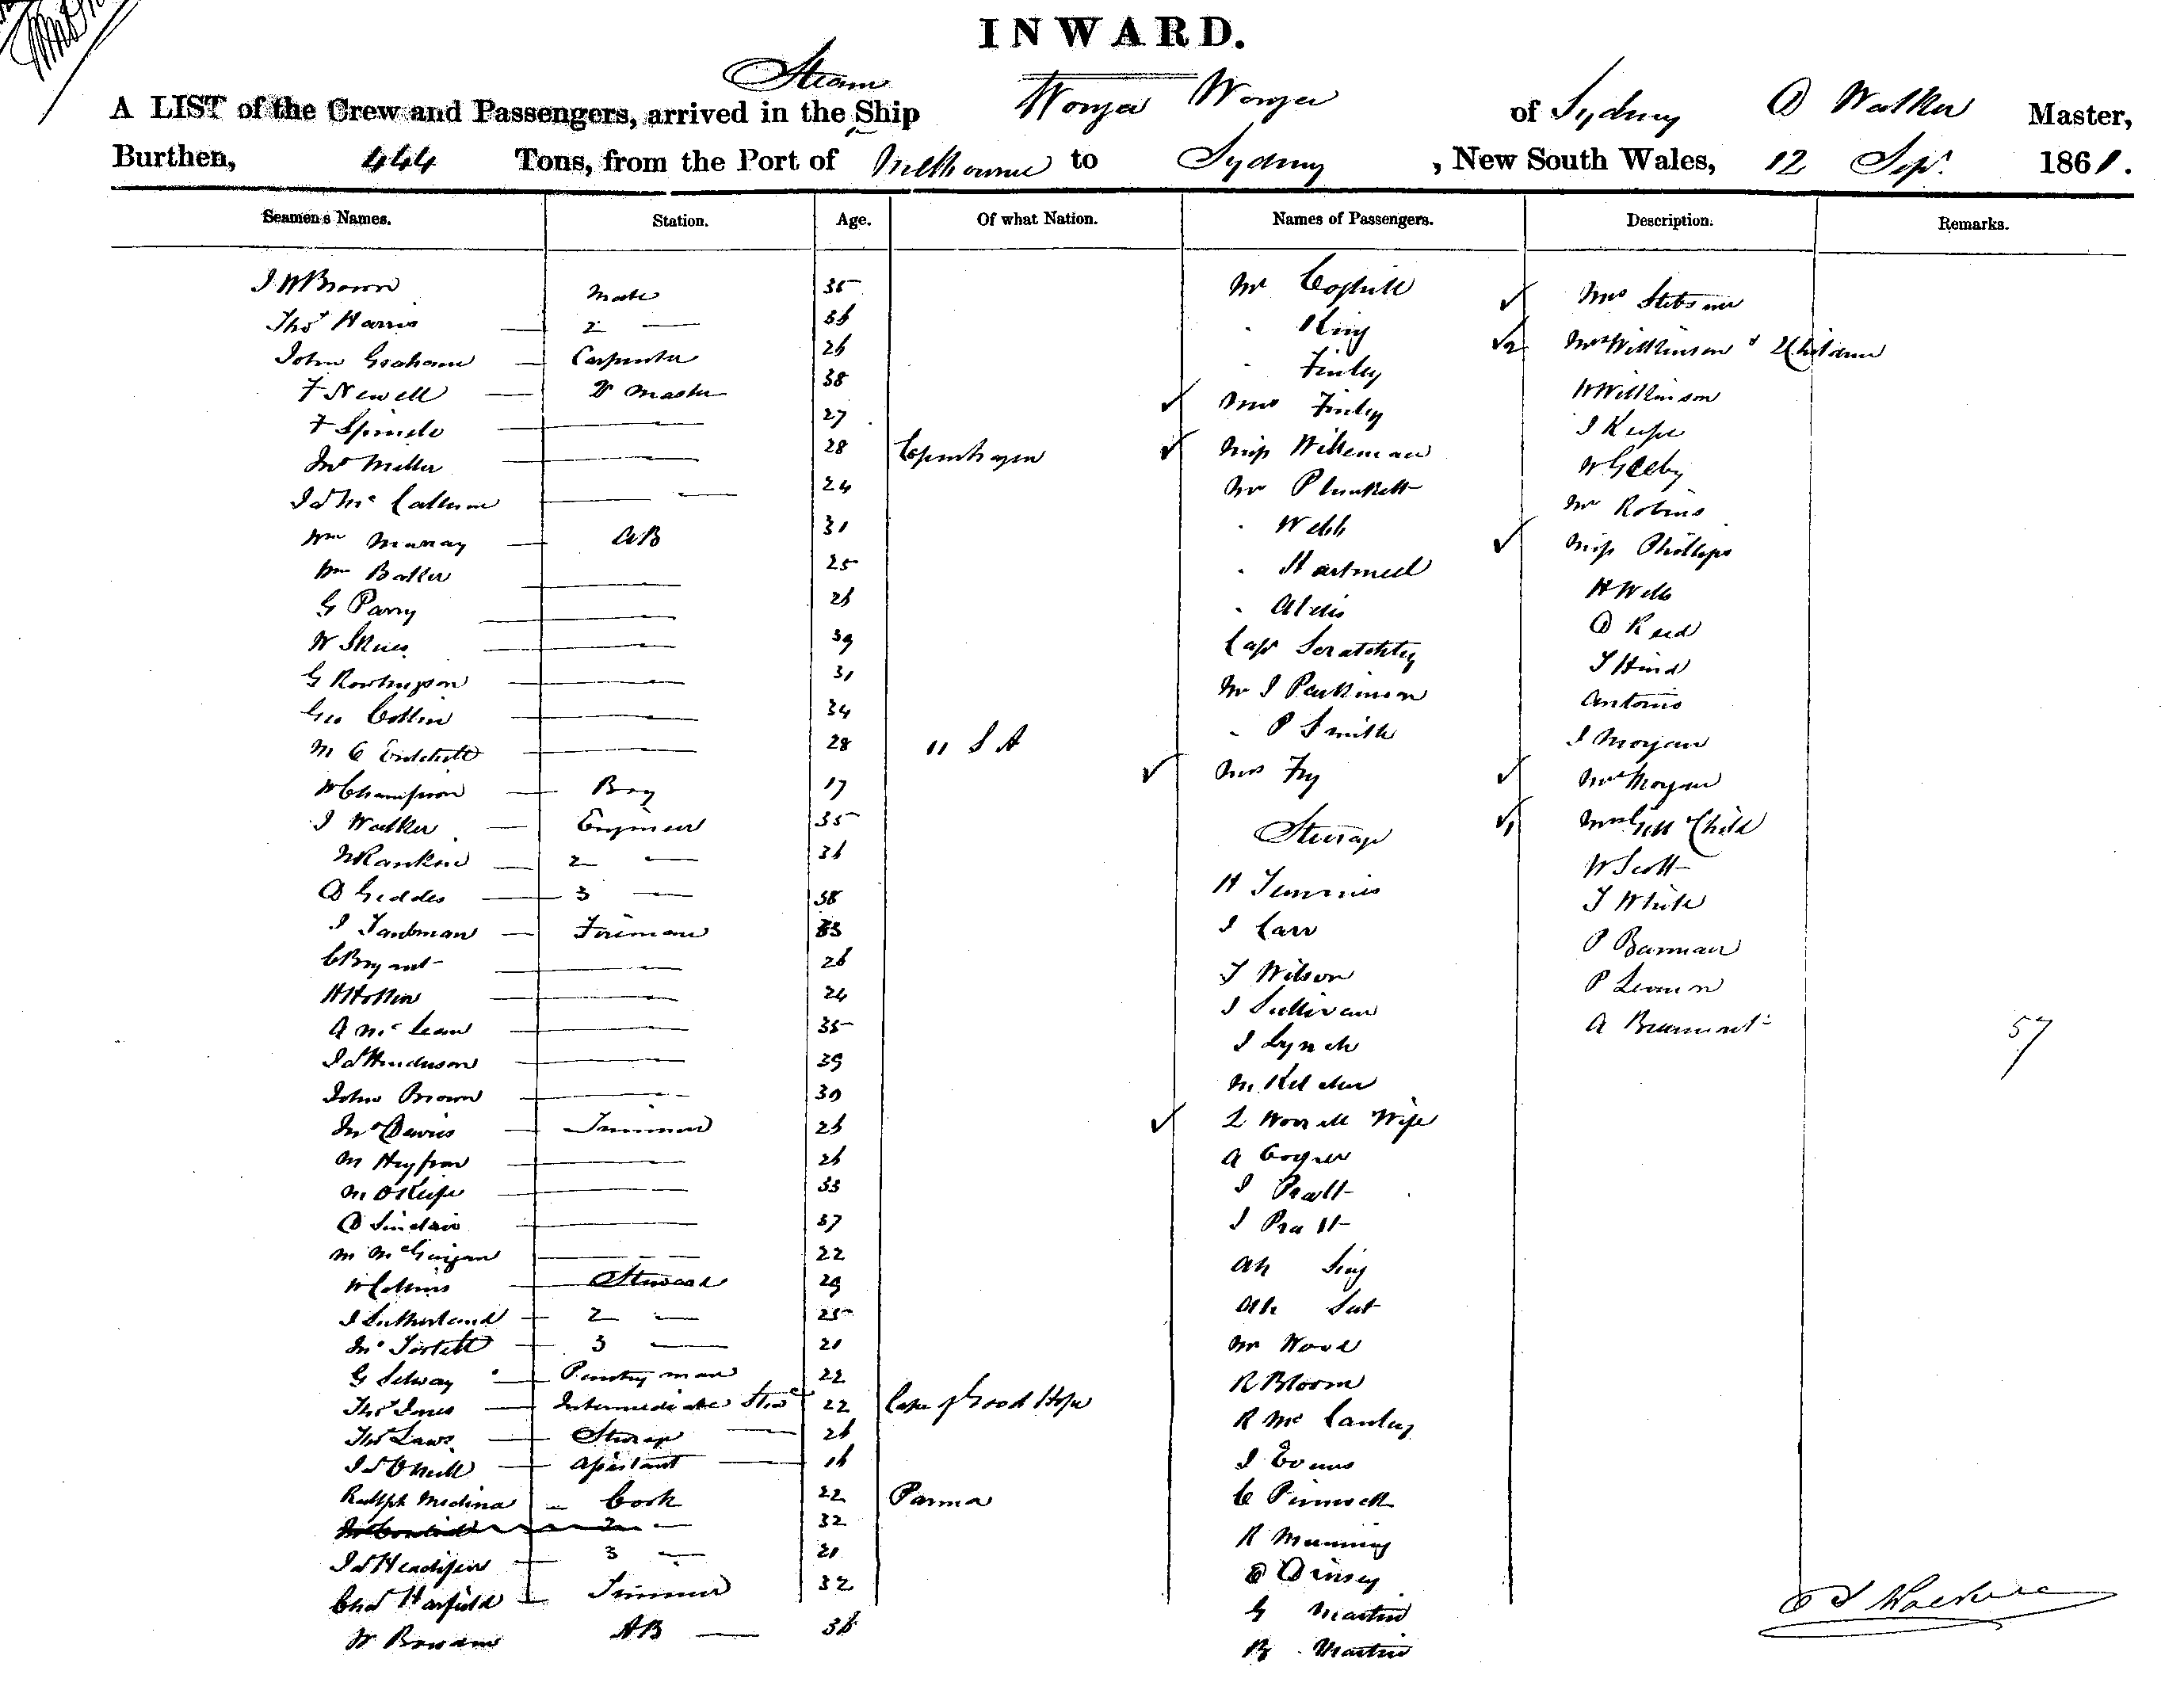 INWARD.
Steam
A LIST of the Crew and Passengers, arrived in the Ship Wonga Wonga of Sydney Walker Master,
Burthen, 444 Tons, from the Port of Melbourne to Sydney, New South Wales, 12 Sepr. 1861.
Seamens Names. Station. Age. Of what Nation. Names of Passengers. Description. Remarks.
J W Brown Mate 35
Thos Harris 2 — 36
John Graham — Carpenter 26
F Newell — Master 38
F — 27
Jno Miller — 28 Copenhagen
Jas McCallum — 24
Wm Murray — AB 31
Wm — 25
G Parry — 26
W — 39
G — 31
Geo Collin — 34
M C — 28 " S A
W Champion — Boy 17
J Walker — Engineer 35
Rankin — 2 — 36
D Geddes — 3 — 38
J — Fireman 33
C Bryant — 26
H — 24
A McLean — 35
Jas Henderson — 39
John Brown — 30
Jno Davies — Trimmer 26
M — 26
M O'Keefe — 33
D Sinclair — 37
M McGuigan — 22
W Collins — Steward 29
J Sutherland — 2 — 25
Jno — 3 — 21
G Selway — Pantryman 22
Thos Innes — Intermediate Stwd 22 Cape of Good Hope
Thos Laws — Steerage — 26
Jas O'Neill — Assistant — 16
Rudolph Medina — Cook 22 Parma
2 — 32
Jas — 3 — 21
Chas Harfield — Trimmer 32
W — AB — 36
Mr Coghill
" King
" Finley
Mrs Finley
Miss Willeman
Mr Plunkett
" Webb
"
"
Capt Scratchley
Mr J Parkinson
" P Smith
Mrs Fry
Steerage
H
J Carr
T Wilson
J Sullivan
J Lynch
M
Wife
A
J Pratt
J Pratt
Ah Sing
Ah
Mr Wood
R Bloom
R McCauley
J Evans
C Pinnock
R Manning
Dinsey
G Martin
Martin
Mrs
2 Mrs Wilkinson & 2 Children
W Wilkinson
J Keefe
W
Mr Robins
Miss Phillips
H Wells
D Reid
T Hind
Antonio
J Morgan
Mrs Morgan
1 Mrs Gill Child
W Scott
T White
P
P
A Beaumont
57